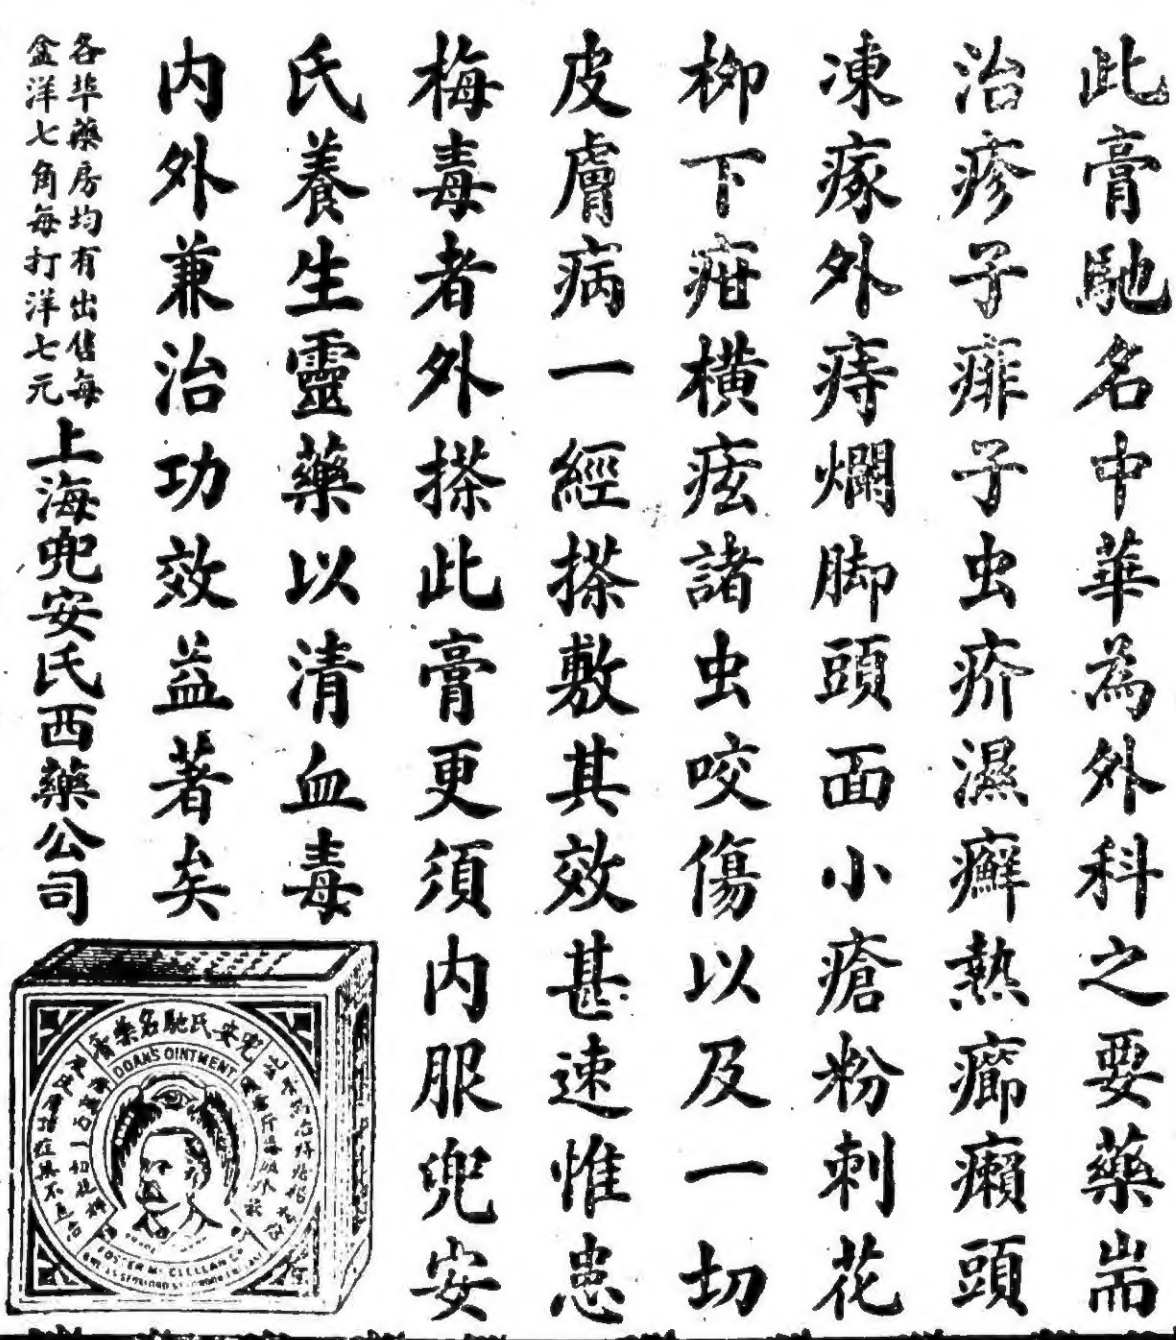 此膏馳名中華為外科之要藥耑
治疹子痱子虫疥濕癬熱癤癩頭
凍瘃外痔爛脚頭面小瘡粉刺花
柳下疳横痃諸虫咬傷以及一切
皮膚病一經搽敷其效甚速惟患
梅毒者外搽此膏更須内服兜安
氏養生靈藥以清血毒
内外兼治功效益著矣
各埠藥房均有出售每
盒洋七角每打洋七元
上海兜安氏西藥公司
兜安氏馳名藥膏
DOAN'S OINTMENT
FOSTER McCLELLAN CO.